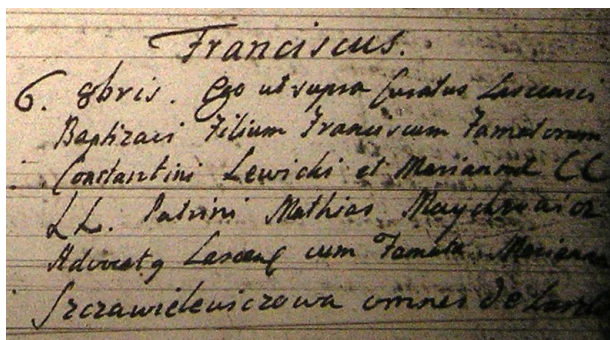 Franciscus.
6. 8bris. Ego ut supra Curatus Lascensis
Baptizavi Filium Franciscum Famatorum
Constantini Lewicki et Marianna CC
LL. Patrini Mathias
Advocatg cum Famata Marianna
Szczawielewiczowa omnes de